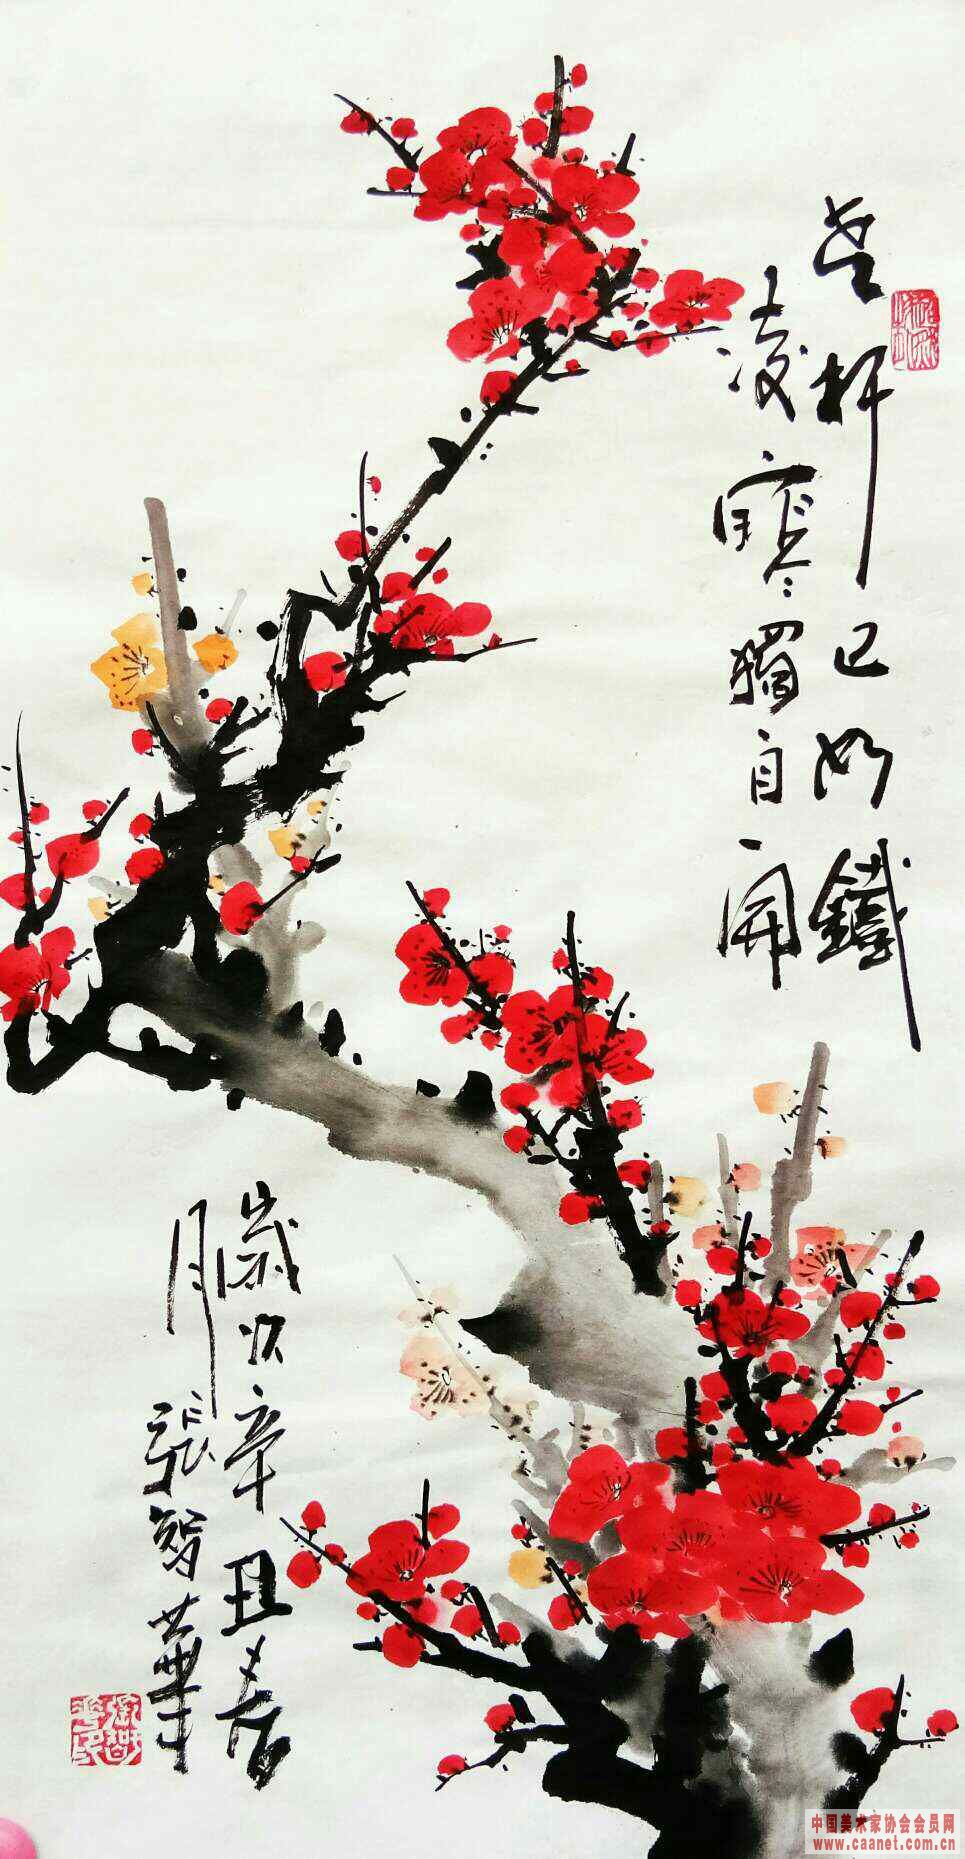 老杆已如鐵
凌寒獨自開
歲次辛丑春
月張智華
中国美术家协会会员网
www.caanet.com.cn